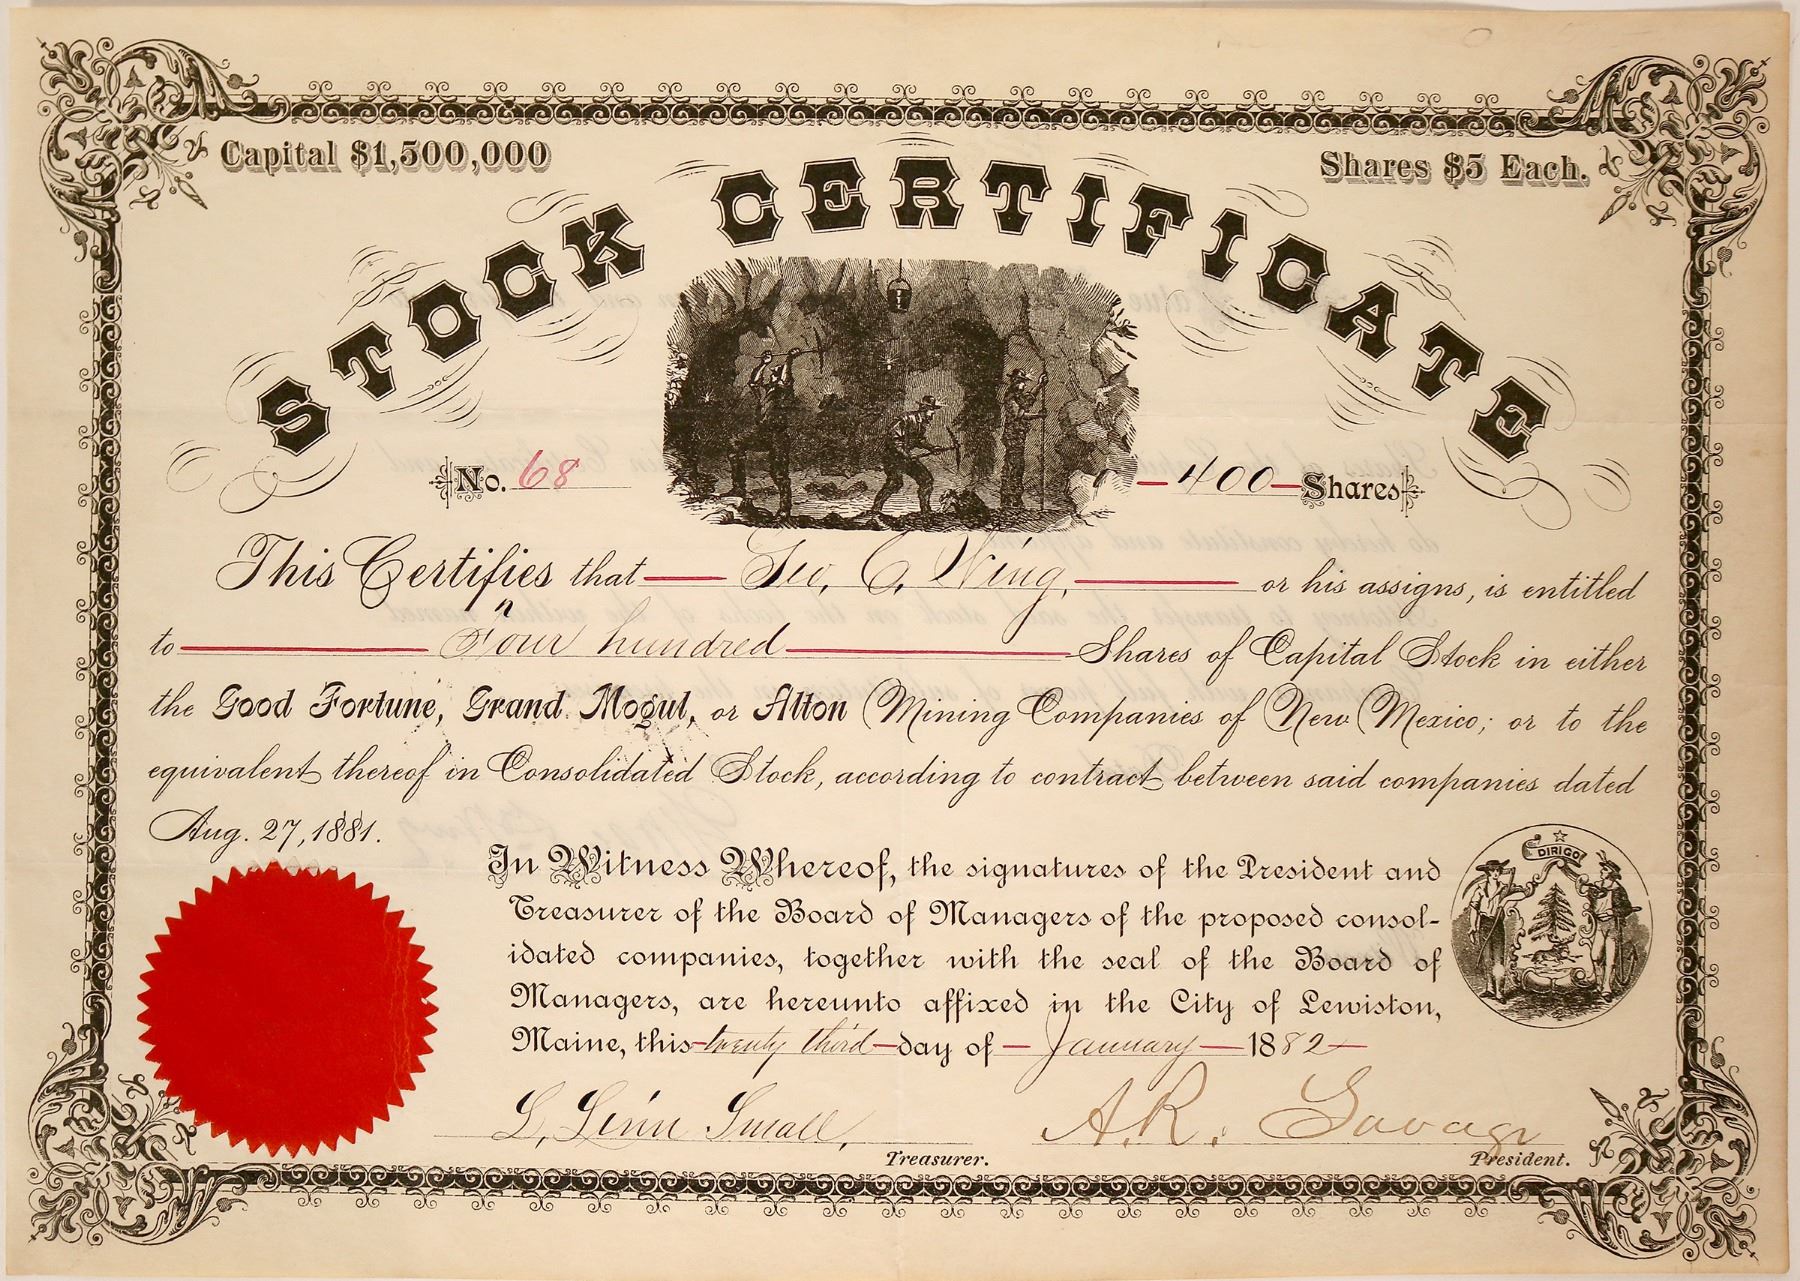 Capital $1,500,000
Shares $5 Each.
STOCK CERTIFICATE
No. 68
400 Shares
This Certifies that Geo. C. Wing, or his assigns, is entitled
to Four hundred Shares of Capital Stock in either
the Good Fortune, Grand Mogul, or Alton Mining Companies of New Mexico; or to the
equivalent thereof in Consolidated Stock, according to contract between said companies dated
Aug. 27, 1881.
DIRIGO
In Witness Whereof, the signatures of the President and
Treasurer of the Board of Managers of the proposed consol-
idated companies, together with the seal of the Board of
Managers, are hereunto affixed in the City of Lewiston,
Maine, this twenty third day of January 1882
L. Linn Small, A. R. Savage
Treasurer. President.